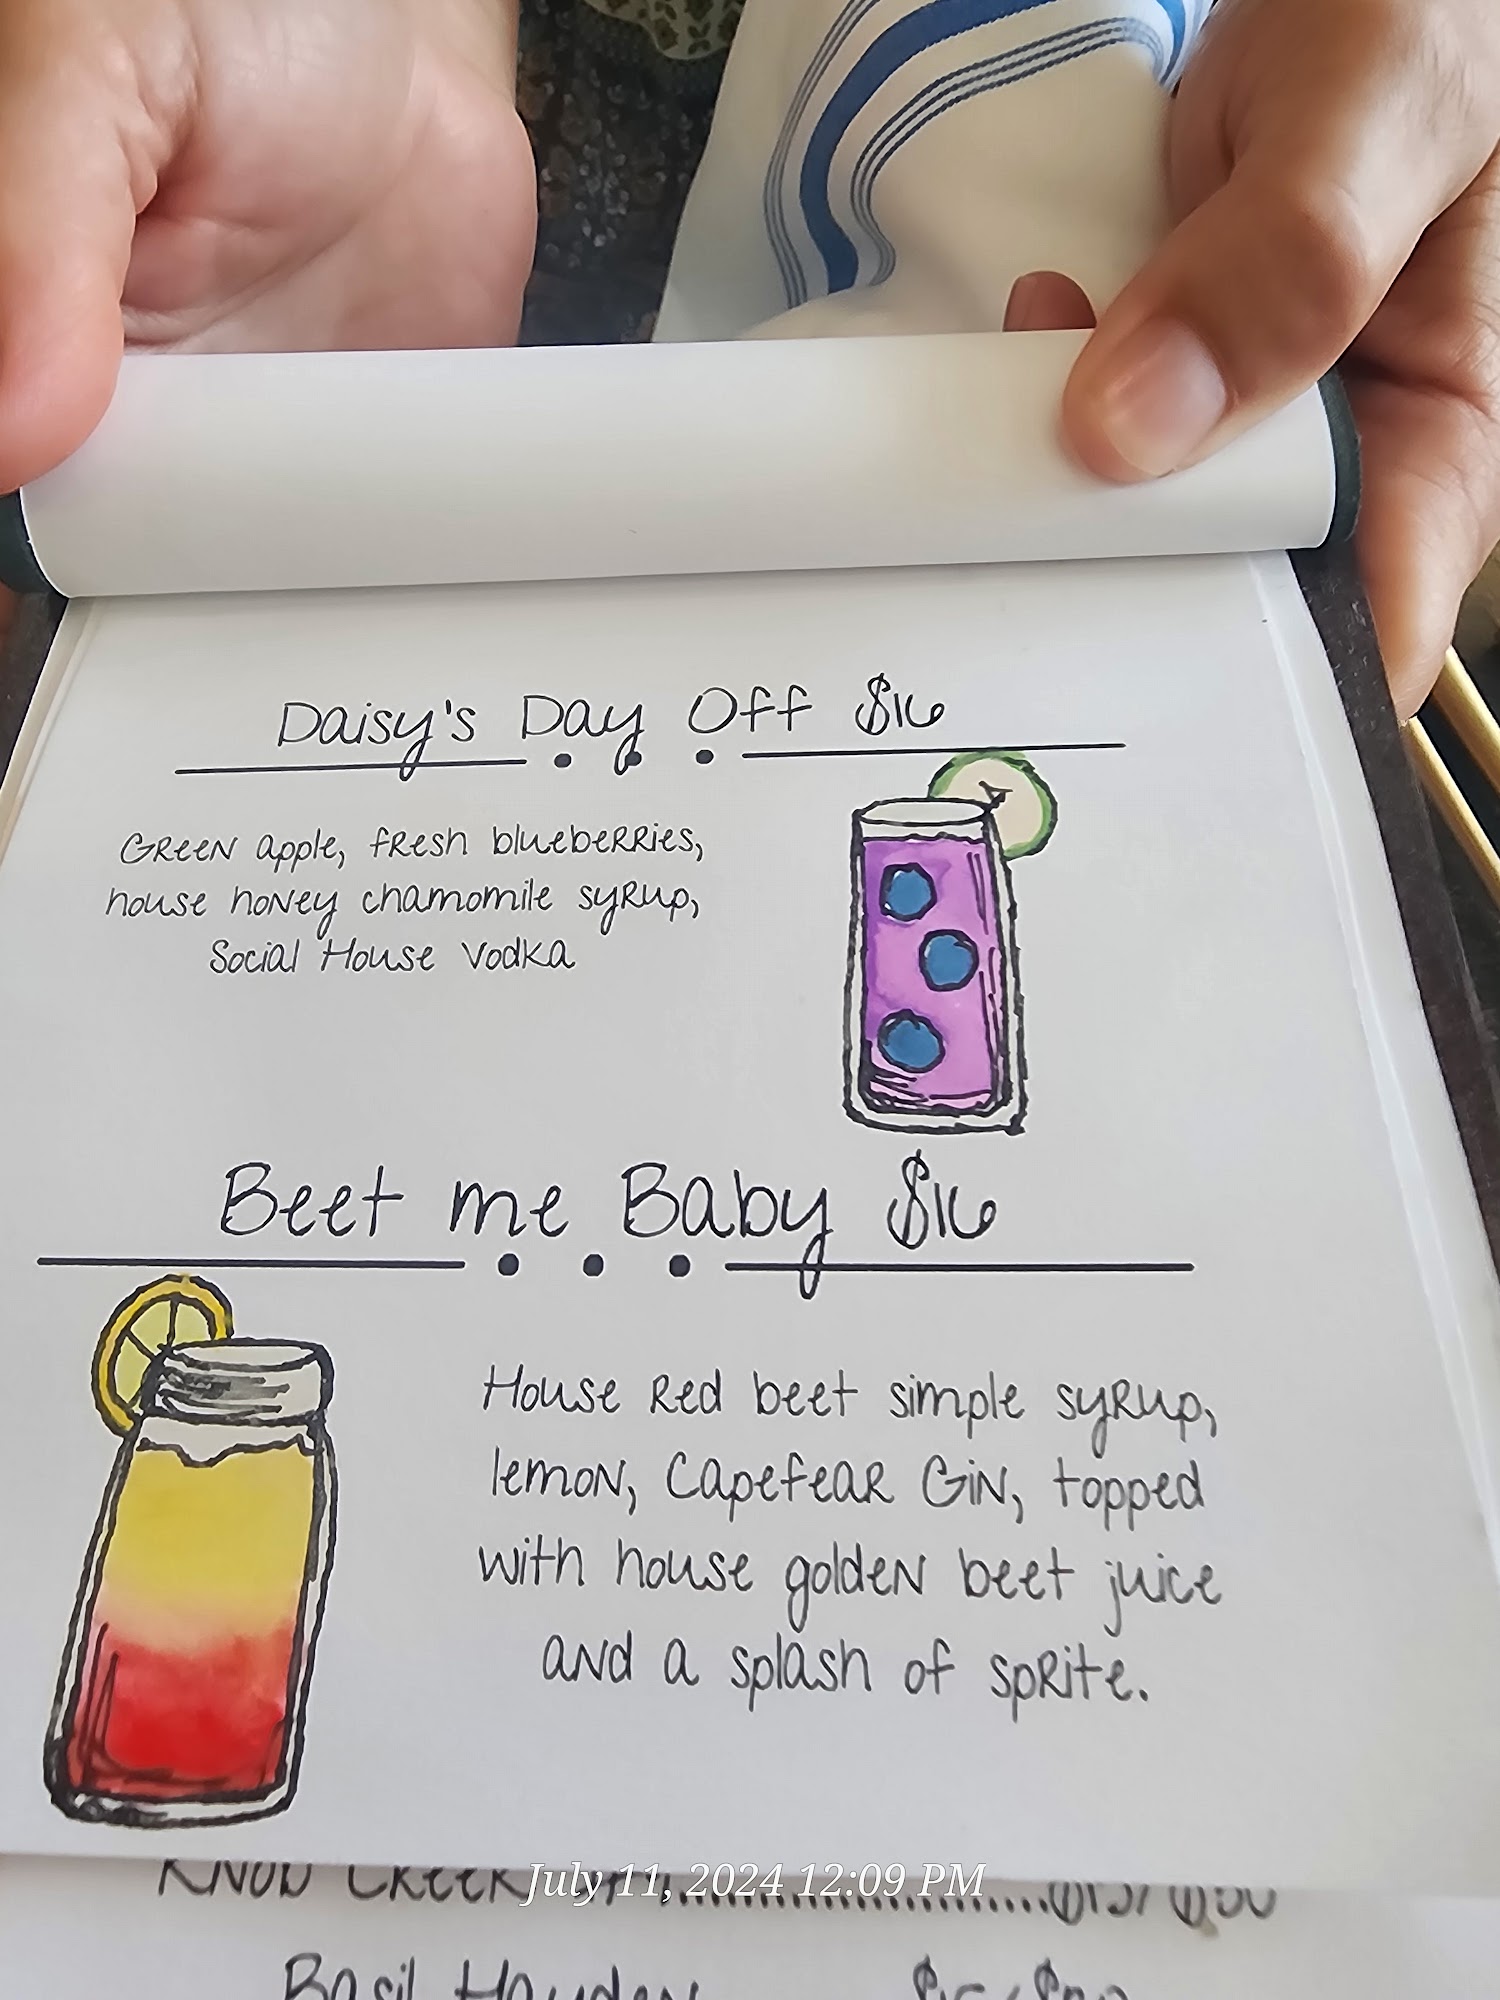 Daisy's Day Off $16
Green apple, fresh blueberries,
house honey chamomile syrup,
Social House Vodka
Beet me Baby $16
House Red beet simple syrup,
lemon, Capefear Gin, topped
with house golden beet juice
and a splash of sprite.
Knob Creek
July 11, 2024 12:09 PM
Basil Hayden